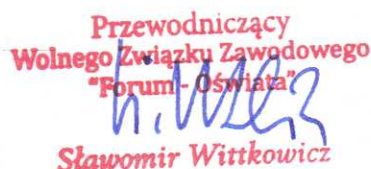 Przewodniczący
Wolnego Związku Zawodowego
"Forum - Oświata"
Sławomir Wittkowicz